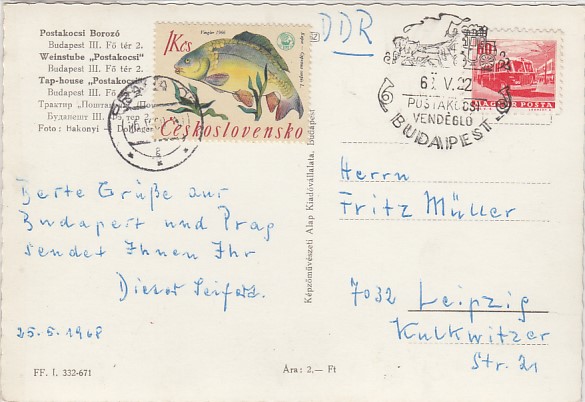 Postakocsi Borozó
Budapest III. Fő tér 2.
Weinstube „Postakocsi"
Budapest III. Fő
Tap-house „Postakocsi
Budapest III. Fő
Трактир
Будапешт III.
Foto:
Vingler 1966
1Kčs
Československo
DDR
V. 22
POSTAKOCSI
VENDÉGLŐ
BUDAPEST
60f
MAGYAR POSTA
Beste Grüße aus
Budapest und Prag
sendet Ihnen Ihr
Dieter Seifert.
25.5.1968
Képzőművészeti Alap Kiadóvállalata, Budapest
Herrn
Fritz Müller
7032 Leipzig
Kulkwitzer
Str. 21
FF. I. 332-671
Ára: 2.— Ft